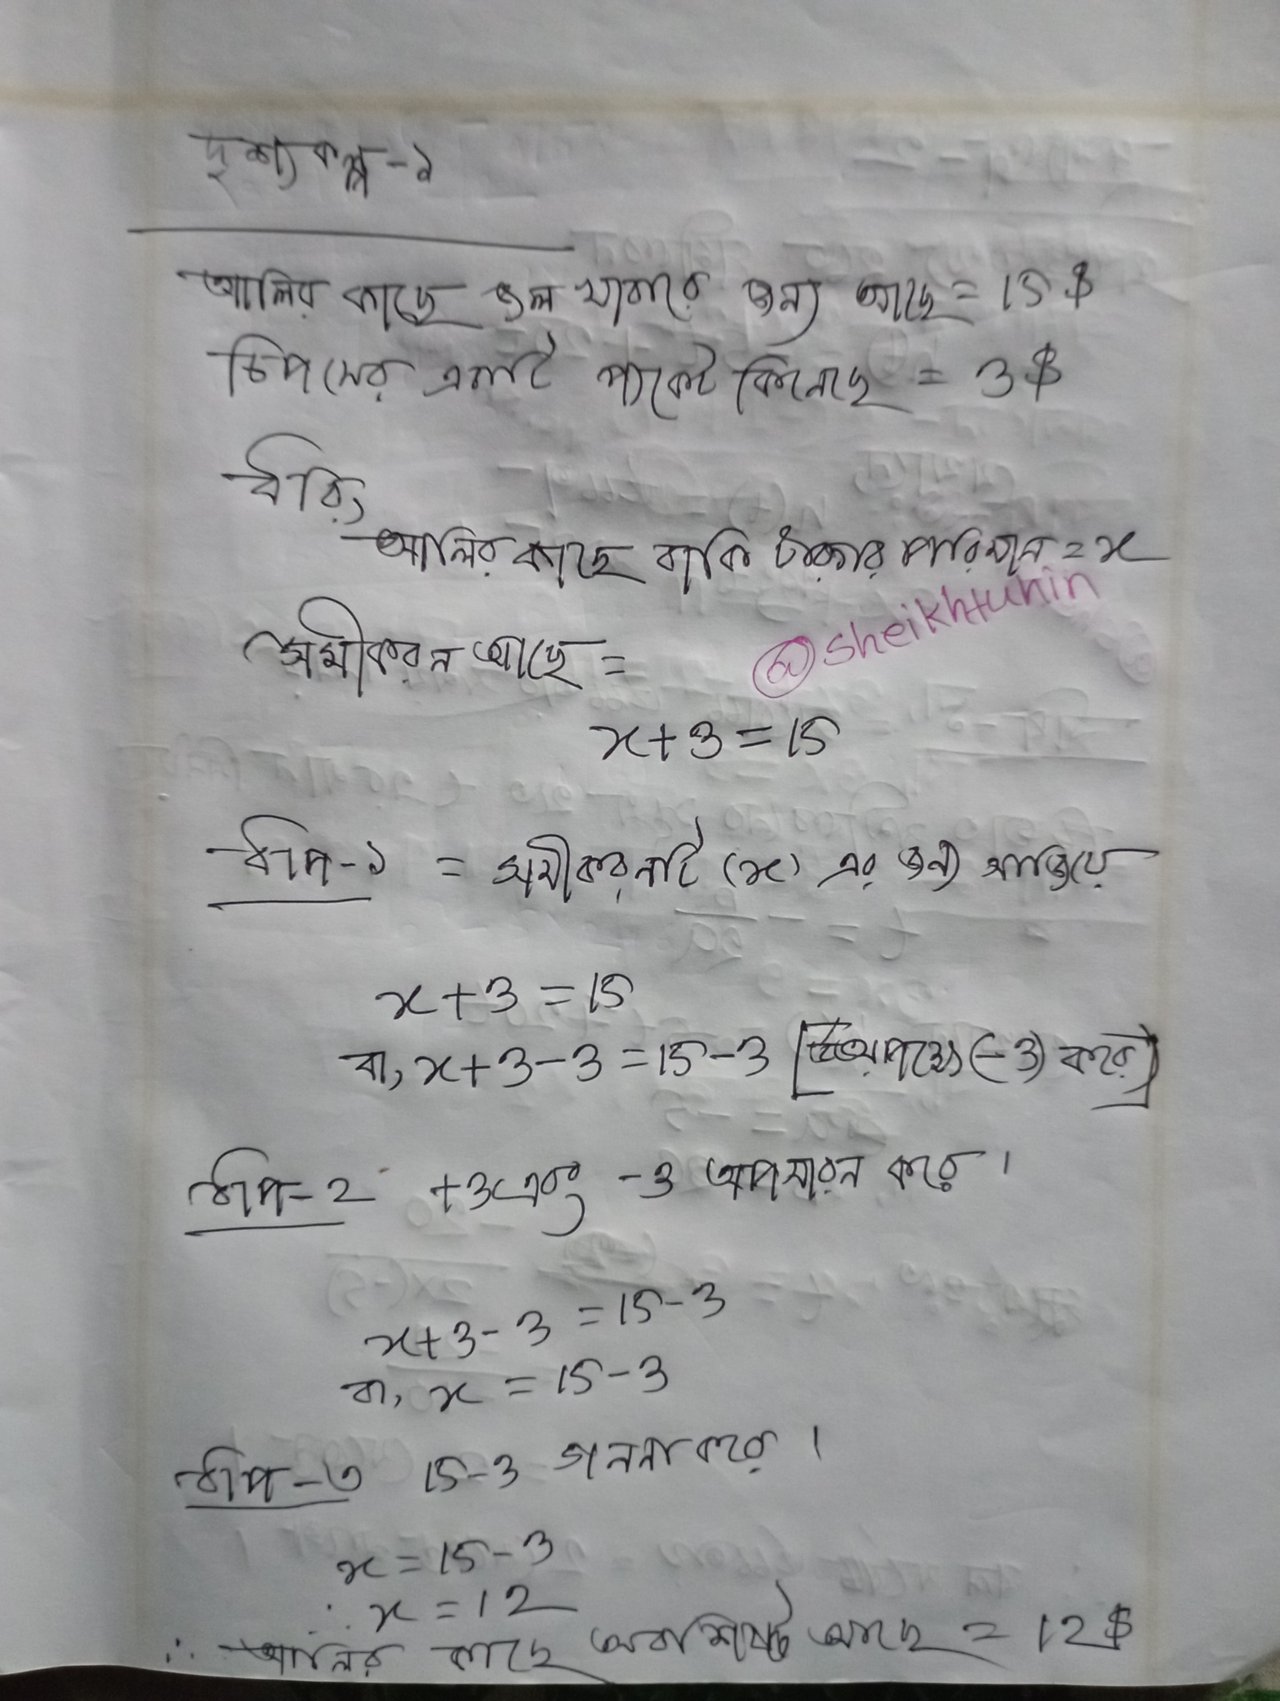 দৃশ্যকল্প-১
আলির কাছে জল খাবারে জন্য আছে = 15 $
চিপসের একটি প্যাকেট কিনেছে = 3 $
ধরি,
আলির কাছে বাকি টাকার পরিমান = x
@sheikhtuhin
সমীকরন আছে =
x + 3 = 15
ধাপ-১ = সমীকরনটি (x) এর জন্য সাজিয়ে
x + 3 = 15
বা, x + 3 - 3 = 15 - 3 [উভয়পক্ষে (-3) করে]
ধাপ-2 +3 এবং -3 অপসারন করে।
x + 3 - 3 = 15 - 3
বা, x = 15 - 3
ধাপ-৩ 15-3 গননা করে।
x = 15 - 3
∴ x = 12
∴ আলির কাছে অবশিষ্ট আছে = 12 $